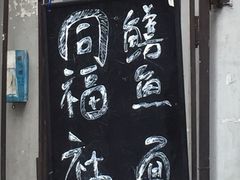 鳝鱼面
同福